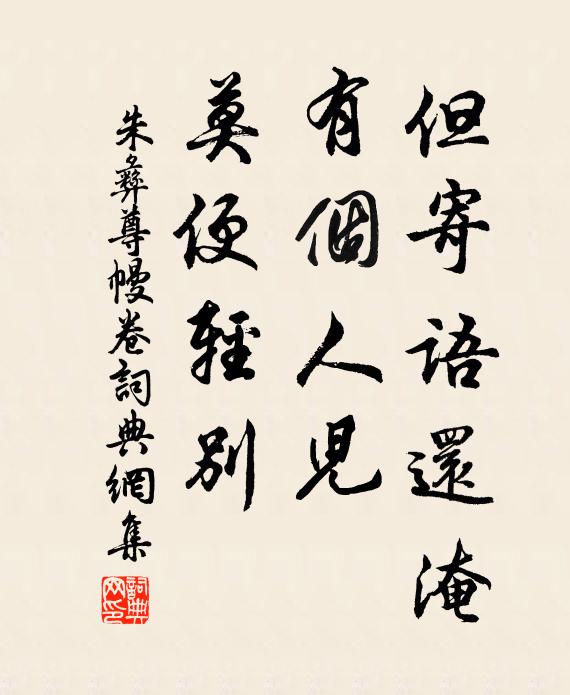 但寄語還淹
有個人児
莫便輕別
朱彝尊幔卷詞典網集
詞典网印